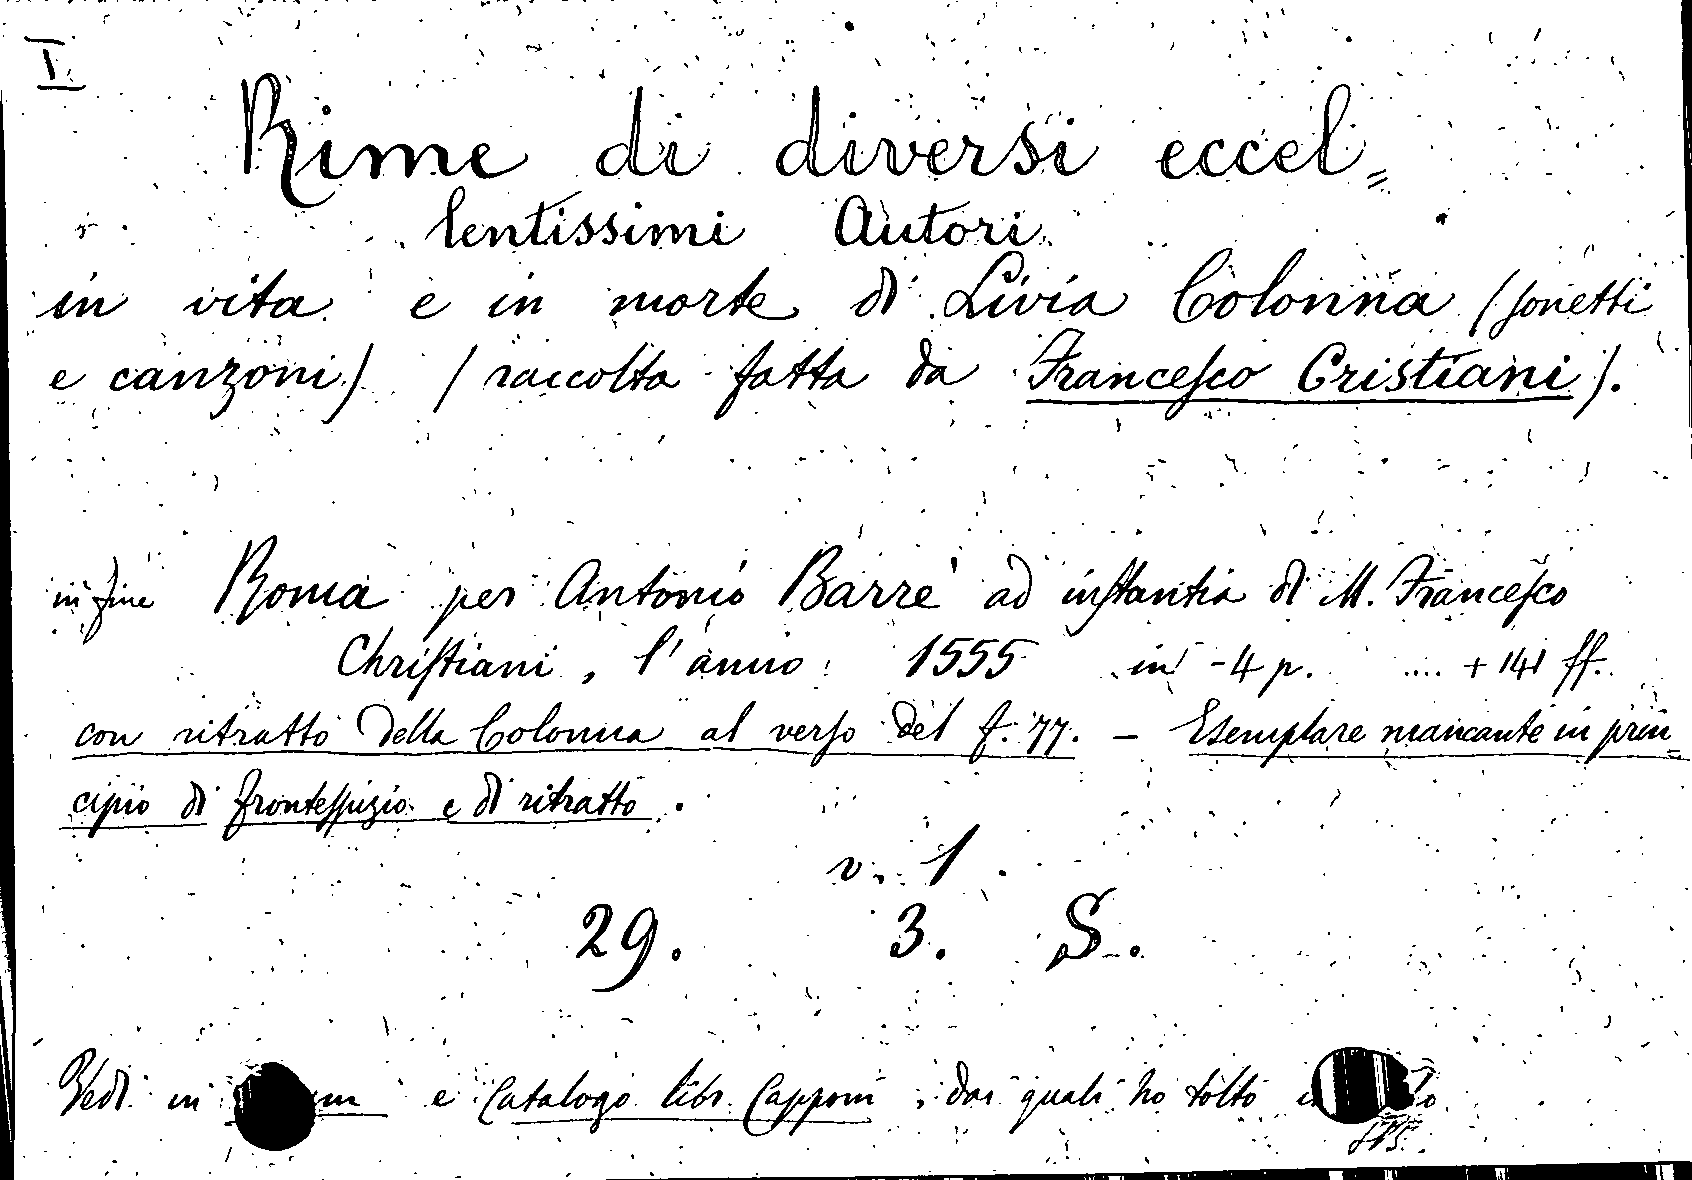 I.
Rime di diversi eccel=
lentissimi Autori
in vita e in morte di Livia Colonna (sonetti
e canzoni) (raccolta fatta da Francesco Cristiani).
in fine Roma per Antonio Barrè ad instantia di M. Francesco
Christiani, l'anno 1555 in -4 p. .... + 141 ff.
con ritratto della Colonna al verso del f. 77. - Esemplare mancante in prin=
cipio di frontespizio e di ritratto.
v. 1
29. 3. S.
Vedi in e Catalogo libr. Capponi, dai quali ho tolto